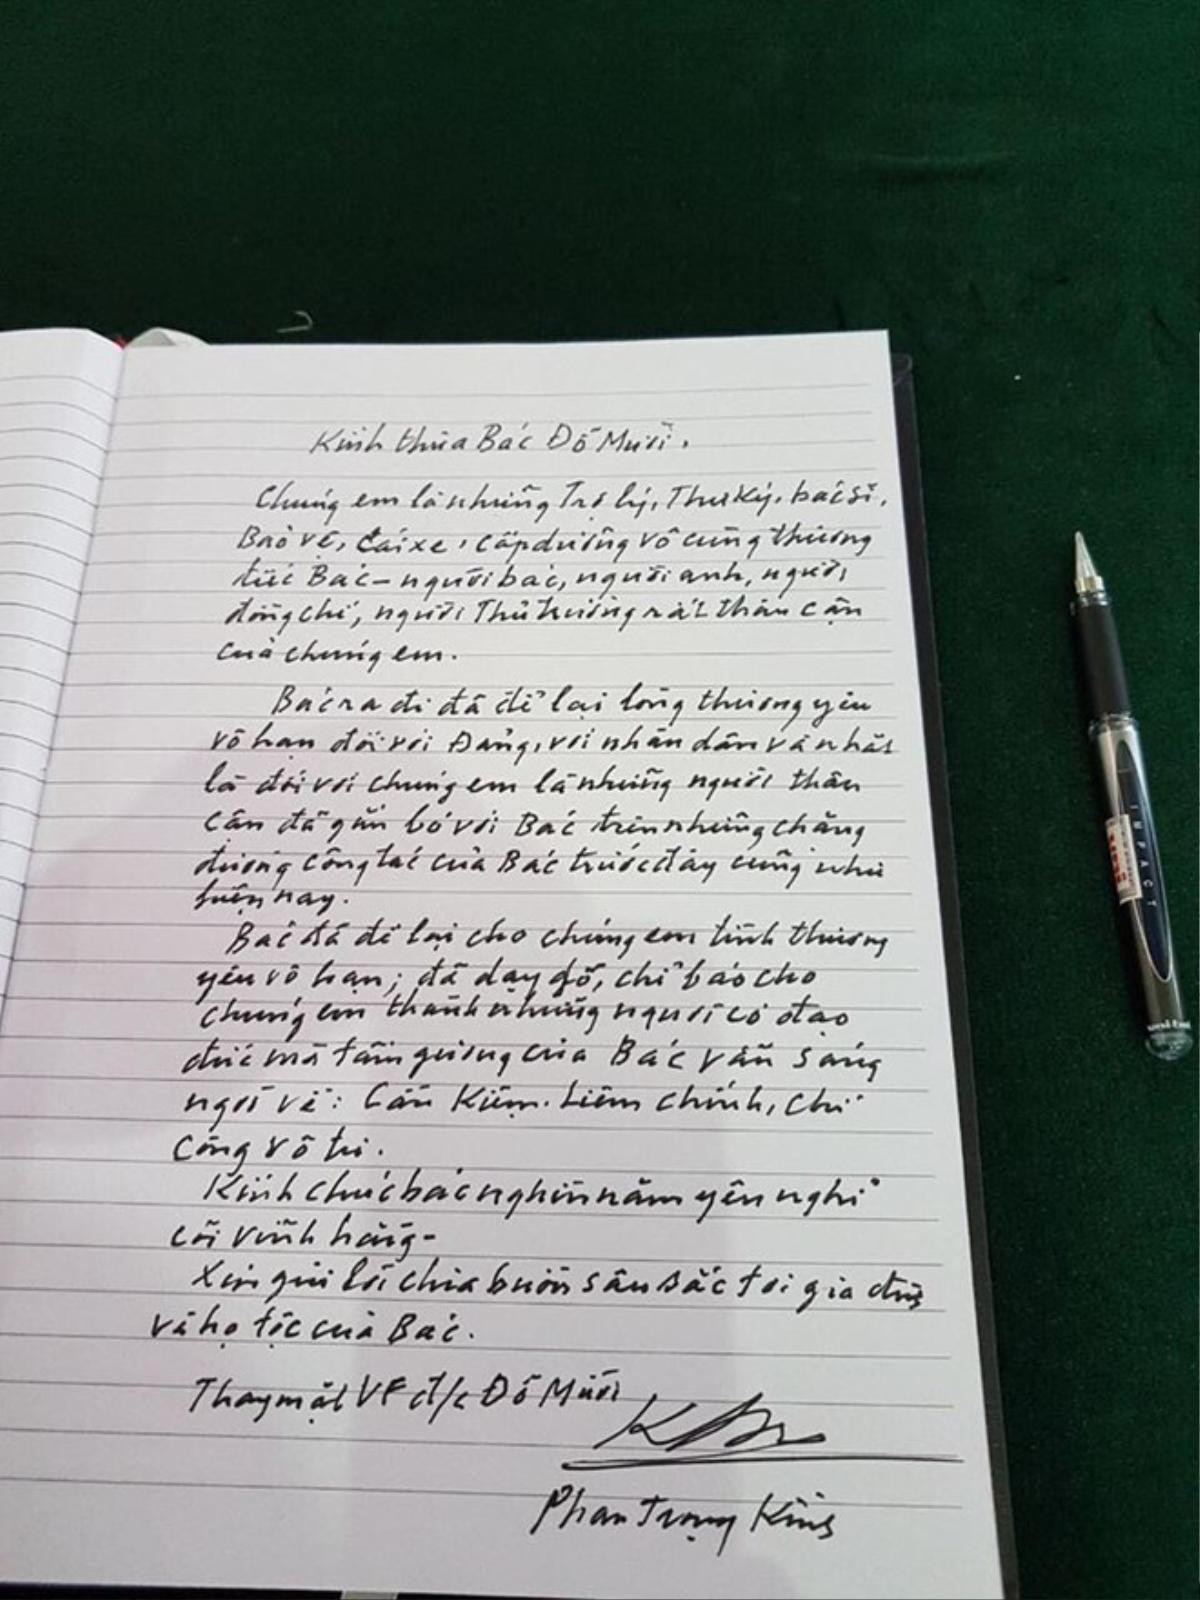 Kính thưa Bác Đỗ Mười,
Chúng em là những Trợ lý, Thư Ký, bác sĩ,
Bảo vệ, Lái xe, cấp dưỡng vô cùng thương
tiếc Bác - người bác, người anh, người
đồng chí, người Thủ trưởng rất thân cận
của chúng em.
Bác ra đi đã để lại lòng thương yêu
vô hạn đối với Đảng, với nhân dân và nhất
là đối với chúng em là những người thân
cận đã gắn bó với Bác trên những chặng
đường công tác của Bác trước đây cũng như
hiện nay.
Bác đã để lại cho chúng em tình thương
yêu vô hạn; đã dạy dỗ, chỉ bảo cho
chúng em thành những người có đạo
đức mà tấm gương của Bác vẫn sáng
ngời về: Cần Kiệm. Liêm chính, chí
công vô tư.
Kính chúc bác nghìn năm yên nghỉ
cõi vĩnh hằng -
Xin gửi lời chia buồn sâu sắc tới gia đình
và họ tộc của Bác.
Thay mặt VF đ/c Đỗ Mười
Phan Trọng Kính
IMPACT
uni-ball